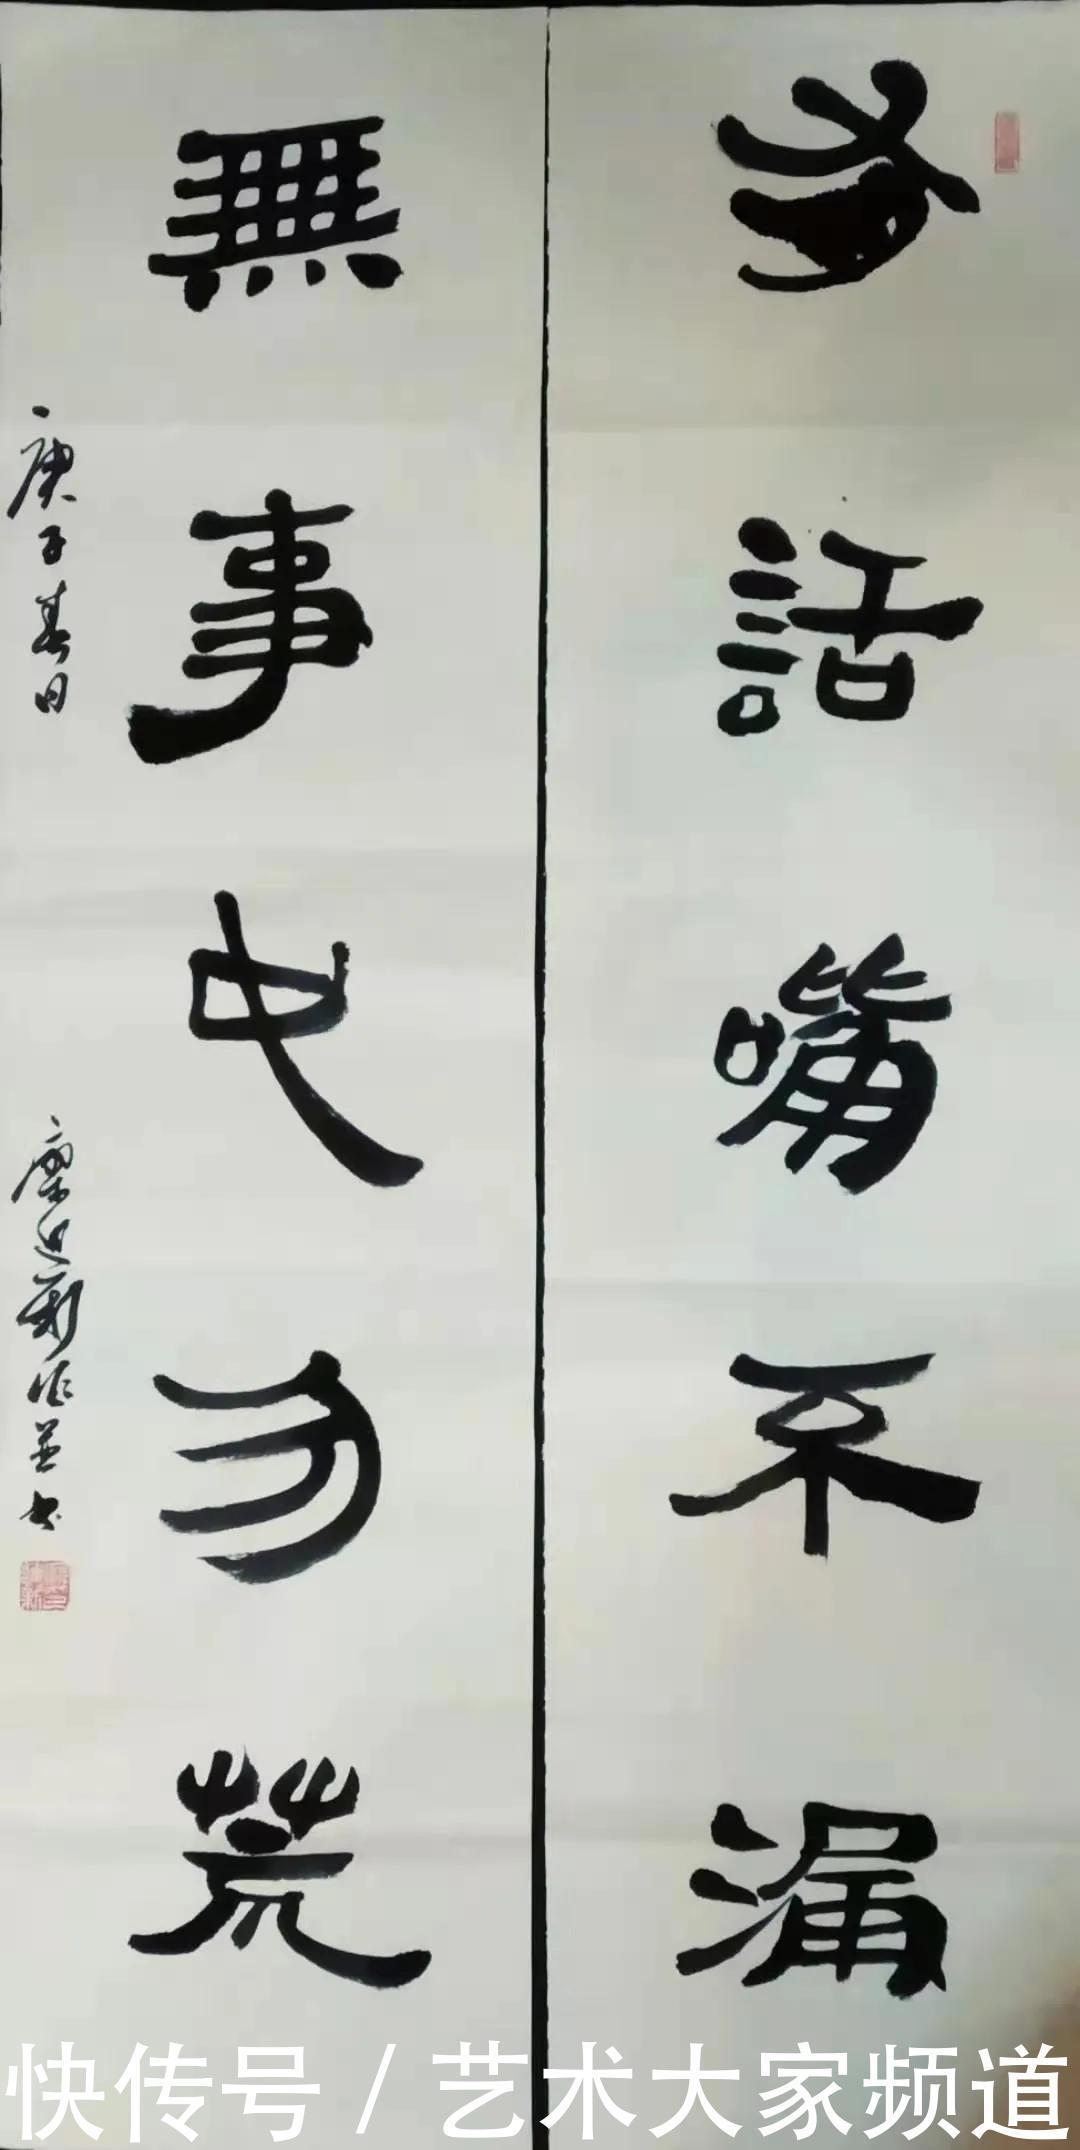 有話嘴不漏
無事勿荒
庚子春日
作並书
快传号/艺术大家频道